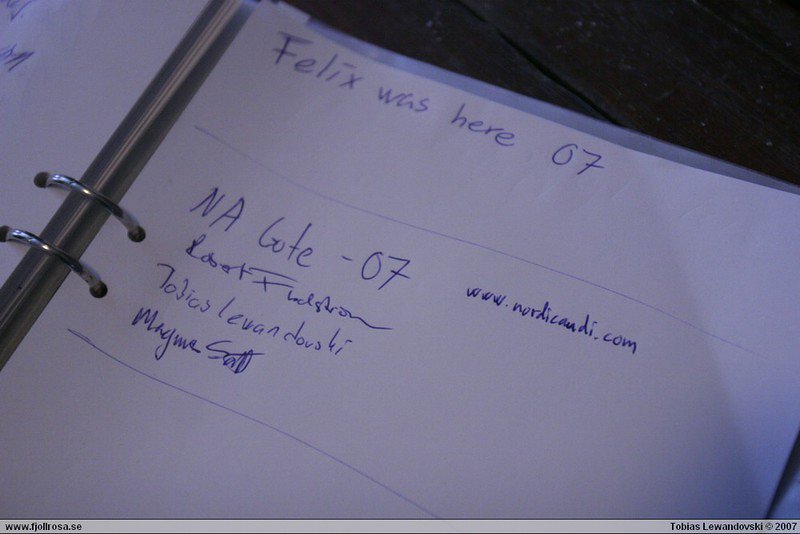 Felix was here 07
NA Göte - 07
Robert
Tobias Lewandovski
Magnus
www.nordicaudi.com
www.fjollrosa.se
Tobias Lewandovski © 2007